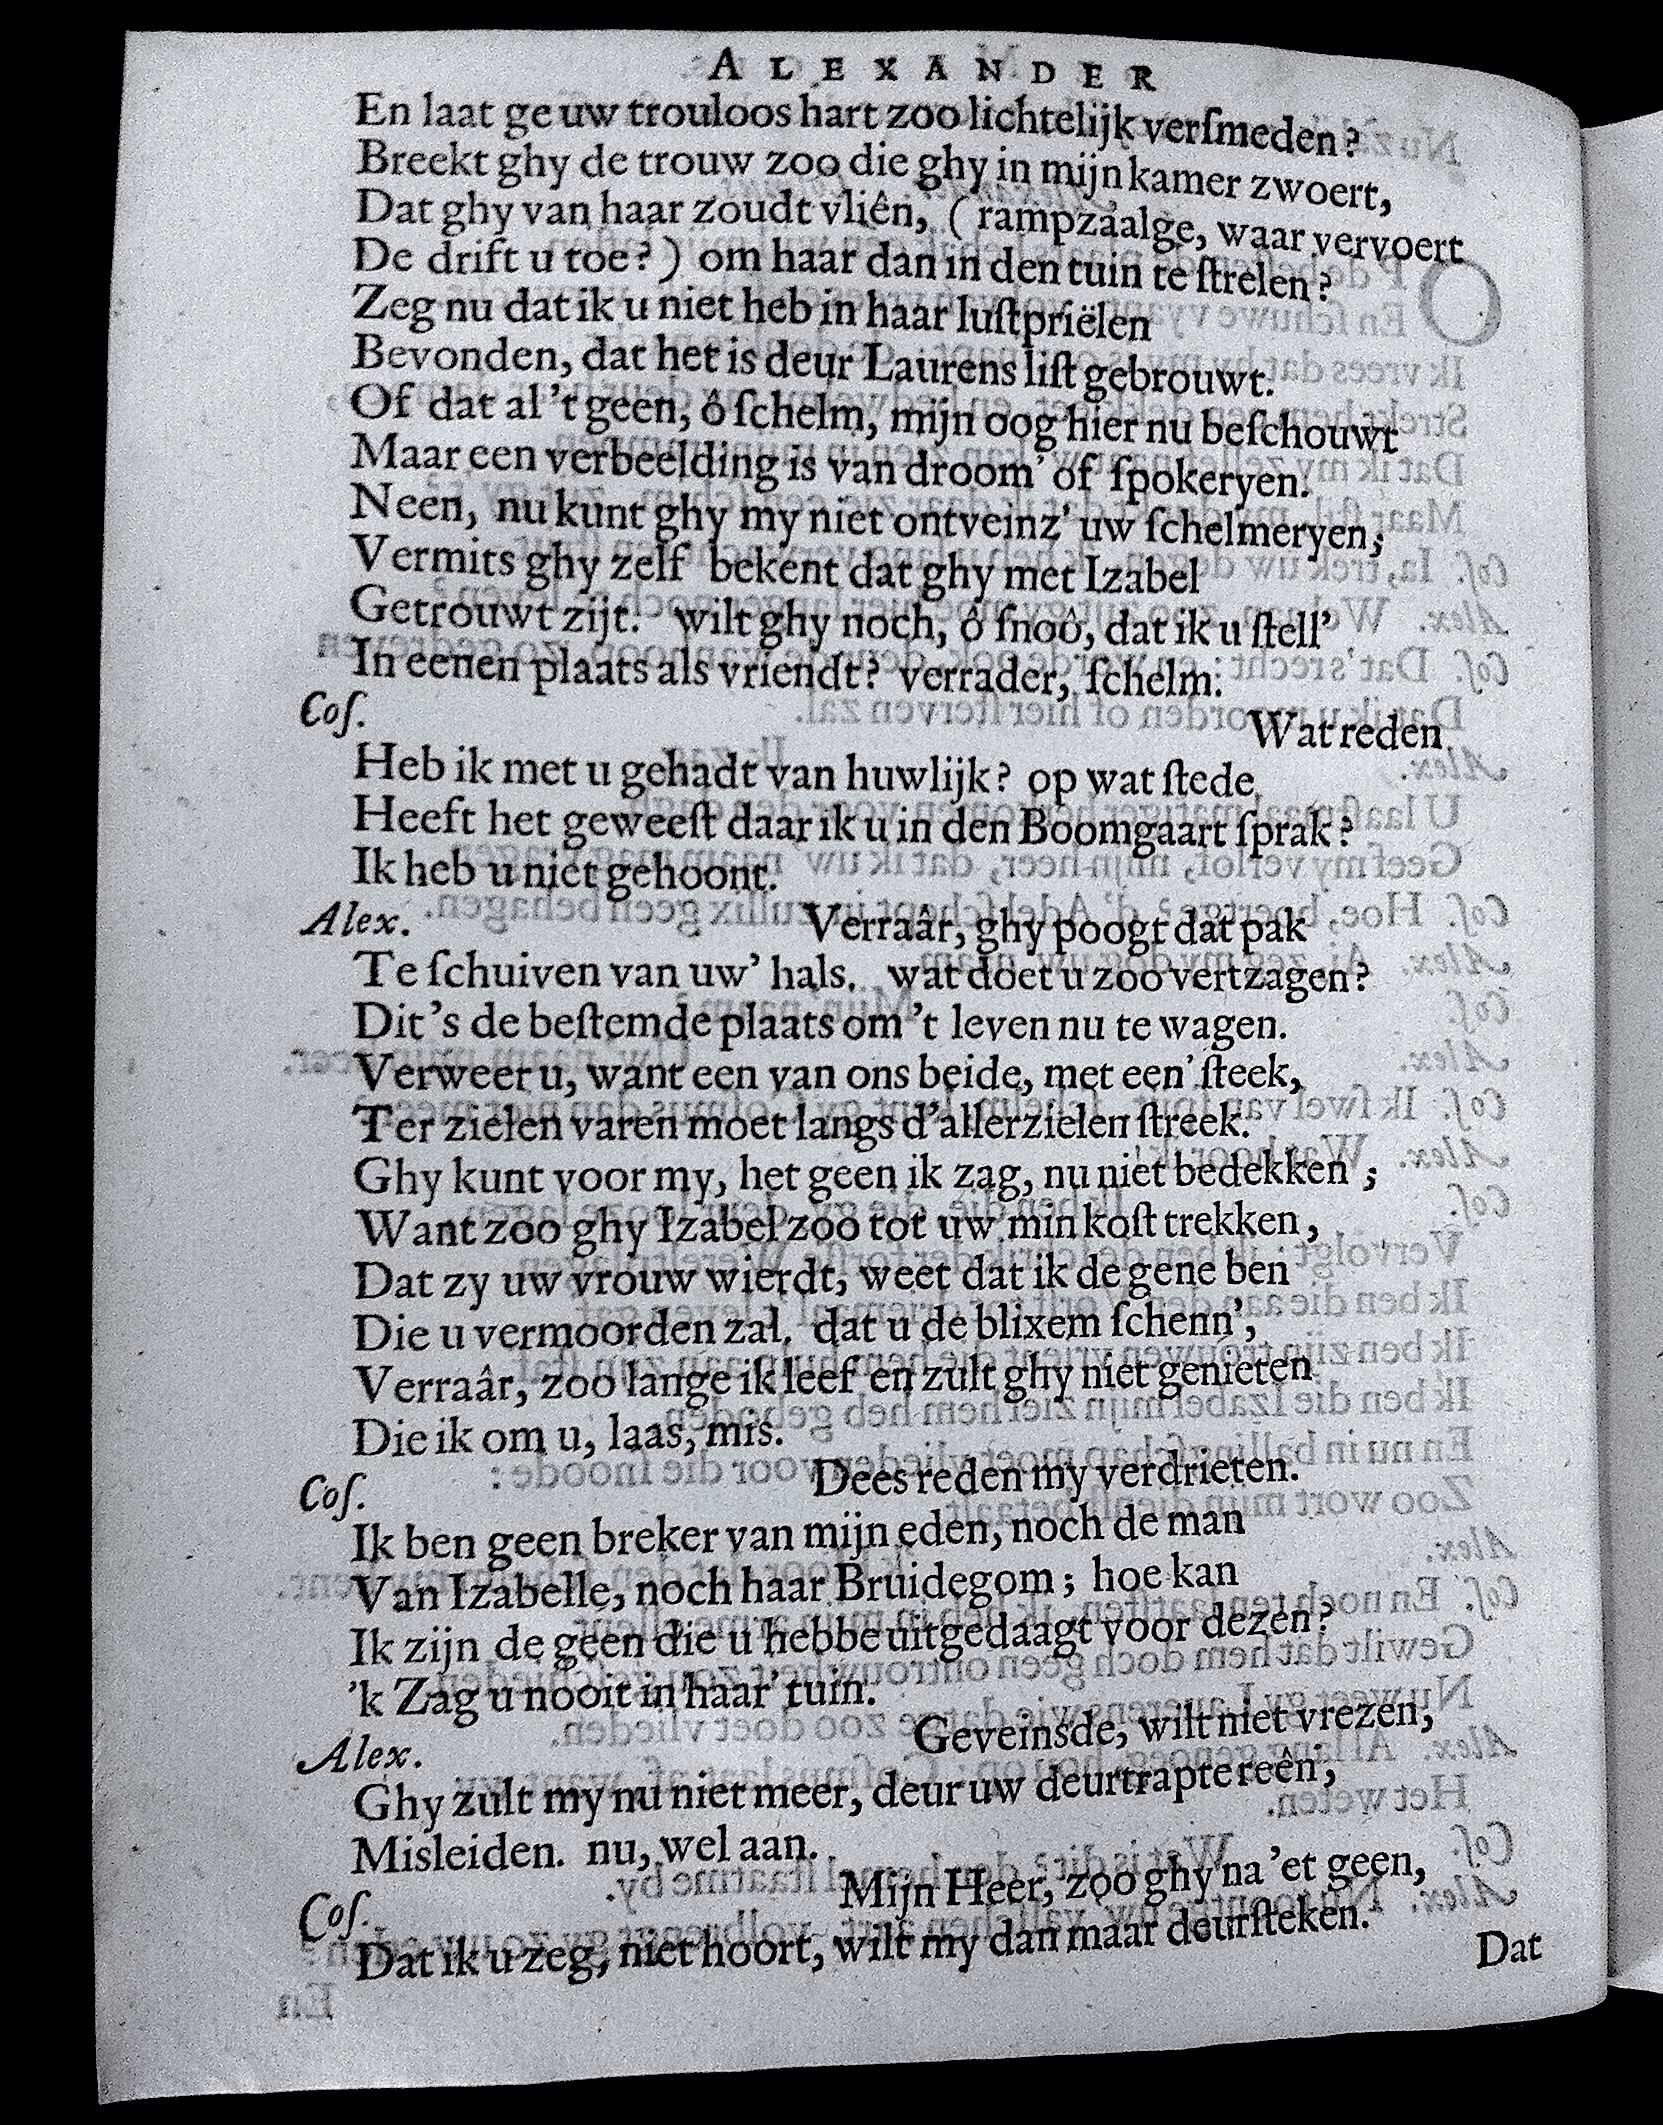 ALEXANDER
En laat ge uw trouloos hart zoo lichtelijk verſmeden?
Breekt ghy de trouw zoo die ghy in mijn kamer zwoert,
Dat ghy van haar zoudt vliên, (rampzaalge, waar vervoert
De drift u toe?) om haar dan in den tuin te ſtrelen?
Zeg nu dat ik u niet heb in haar luſtpriëlen
Bevonden, dat het is deur Laurens liſt gebrouwt.
Of dat al 't geen, ô ſchelm, mijn oog hier nu beſchouwt
Maar een verbeelding is van droom' of ſpokeryen.
Neen, nu kunt ghy my niet ontveinz' uw ſchelmeryen;
Vermits ghy zelf bekent dat ghy met Izabel
Getrouwt zijt. wilt ghy noch, ô ſnoô, dat ik u ſtell'
In eenen plaats als vriendt? verrader, ſchelm.
Coſ. Wat reden
Heb ik met u gehadt van huwlijk? op wat ſtede
Heeft het geweeſt daar ik u in den Boomgaart ſprak?
Ik heb u niet gehoont.
Alex. Verraâr, ghy poogt dat pak
Te ſchuiven van uw' hals. wat doet u zoo vertzagen?
Dit's de beſtemde plaats om 't leven nu te wagen.
Verweer u, want een van ons beide, met een' ſteek,
Ter zielen varen moet langs d'allerzielen ſtreek.
Ghy kunt voor my, het geen ik zag, nu niet bedekken;
Want zoo ghy Izabel zoo tot uw min koſt trekken,
Dat zy uw vrouw wierdt, weet dat ik de gene ben
Die u vermoorden zal. dat u de blixem ſchenn',
Verraâr, zoo lange ik leef en zult ghy niet genieten
Die ik om u, laas, mis.
Coſ. Dees reden my verdrieten.
Ik ben geen breker van mijn eden, noch de man
Van Izabelle, noch haar Bruidegom; hoe kan
Ik zijn de geen die u hebbe uitgedaagt voor dezen?
'k Zag u nooit in haar' tuin.
Alex. Geveinsde, wilt niet vrezen,
Ghy zult my nu niet meer, deur uw deurtrapte reên,
Misleiden. nu, wel aan.
Coſ. Mijn Heer, zoo ghy na 'et geen,
Dat ik u zeg, niet hoort, wilt my dan maar deurſteken.
Dat